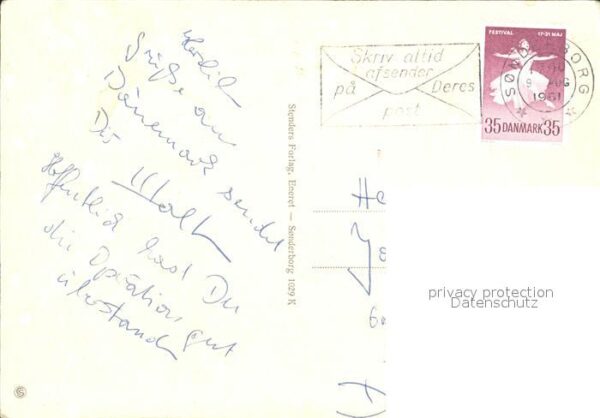 Herzlich
Grüße aus
Dänemark sendet
Dir
Hoffentlich hast Du
die Operation gut
überstanden
Stenders Forlag, Eneret — Sønderborg 1029 K
Skriv altid
afsender
på Deres
post
SØNDERBORG
9 AUG
1961
FESTIVAL 17-31 MAJ
35 DANMARK 35
He
privacy protection
Datenschutz